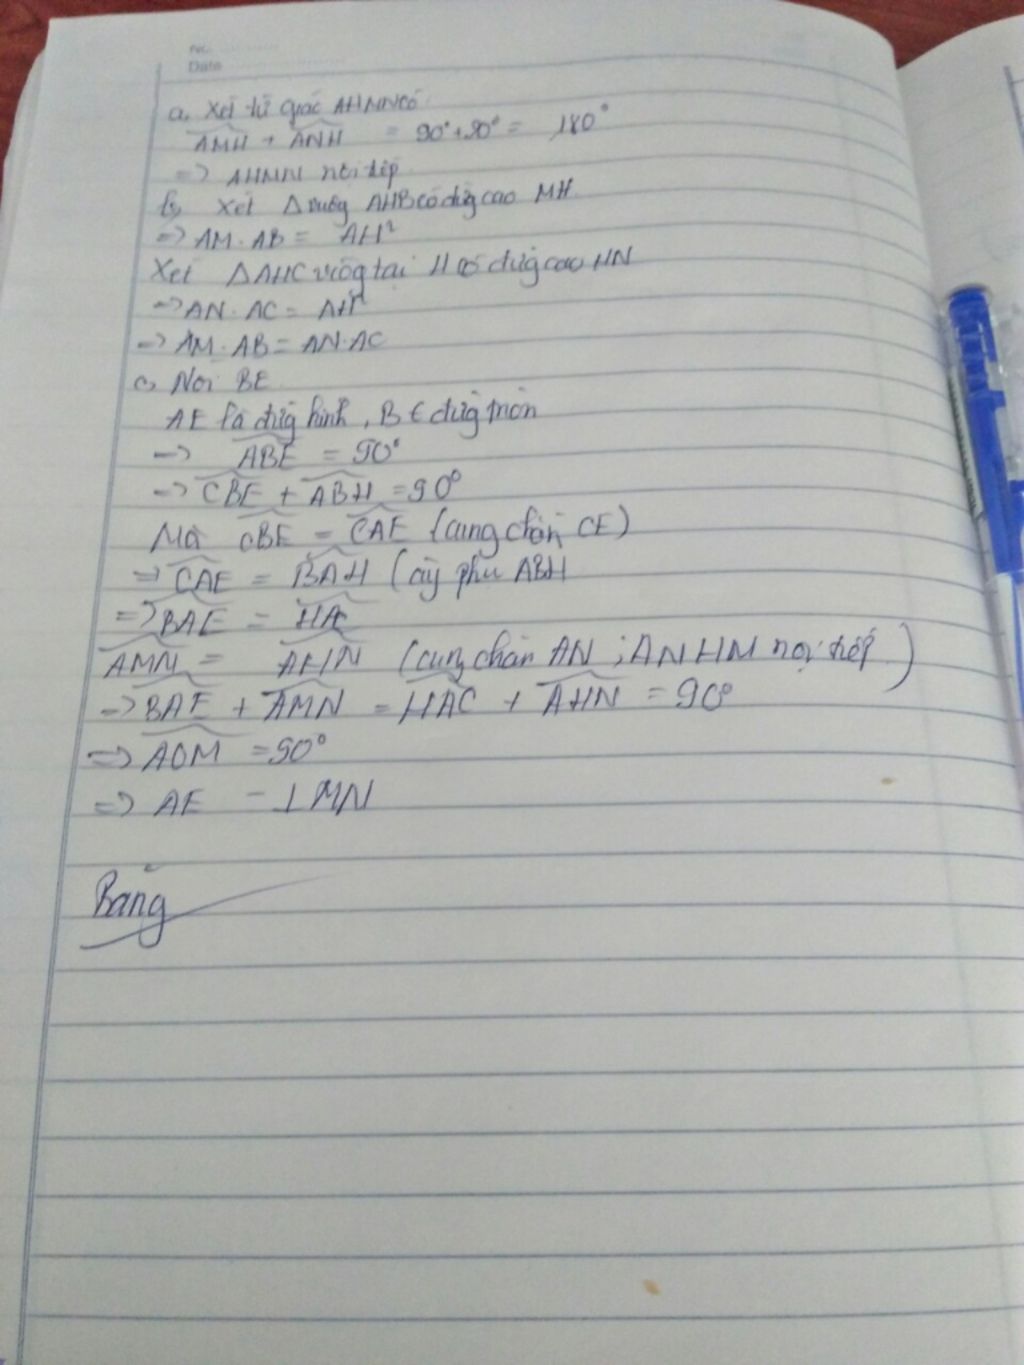 No.
Date
a, Xét tứ giác AHMN có
AMH + ANH = 90° + 90° = 180°
=> AHMN nội tiếp
b, Xét Δ vuông AHB có đg cao MH.
=> AM. AB = AH²
Xét ΔAHC vuôg tại H có đườg cao HN
=> AN. AC = AH²
=> AM. AB = AN. AC
c, Nối BE
AE là đườg kính, B ∈ đườg tròn
=> ABE = 90°
=> CBE + ABH = 90°
Mà CBE = CAE (cung chắn CE)
=> CAE = BAH (cùg phụ ABH
=> BAE = HAC
AMN = AHN (cung chắn AN ; ANHM nội tiếp)
=> BAE + AMN = HAC + AHN = 90°
=> AOM = 90°
=> AE ⊥ MN
Bằng